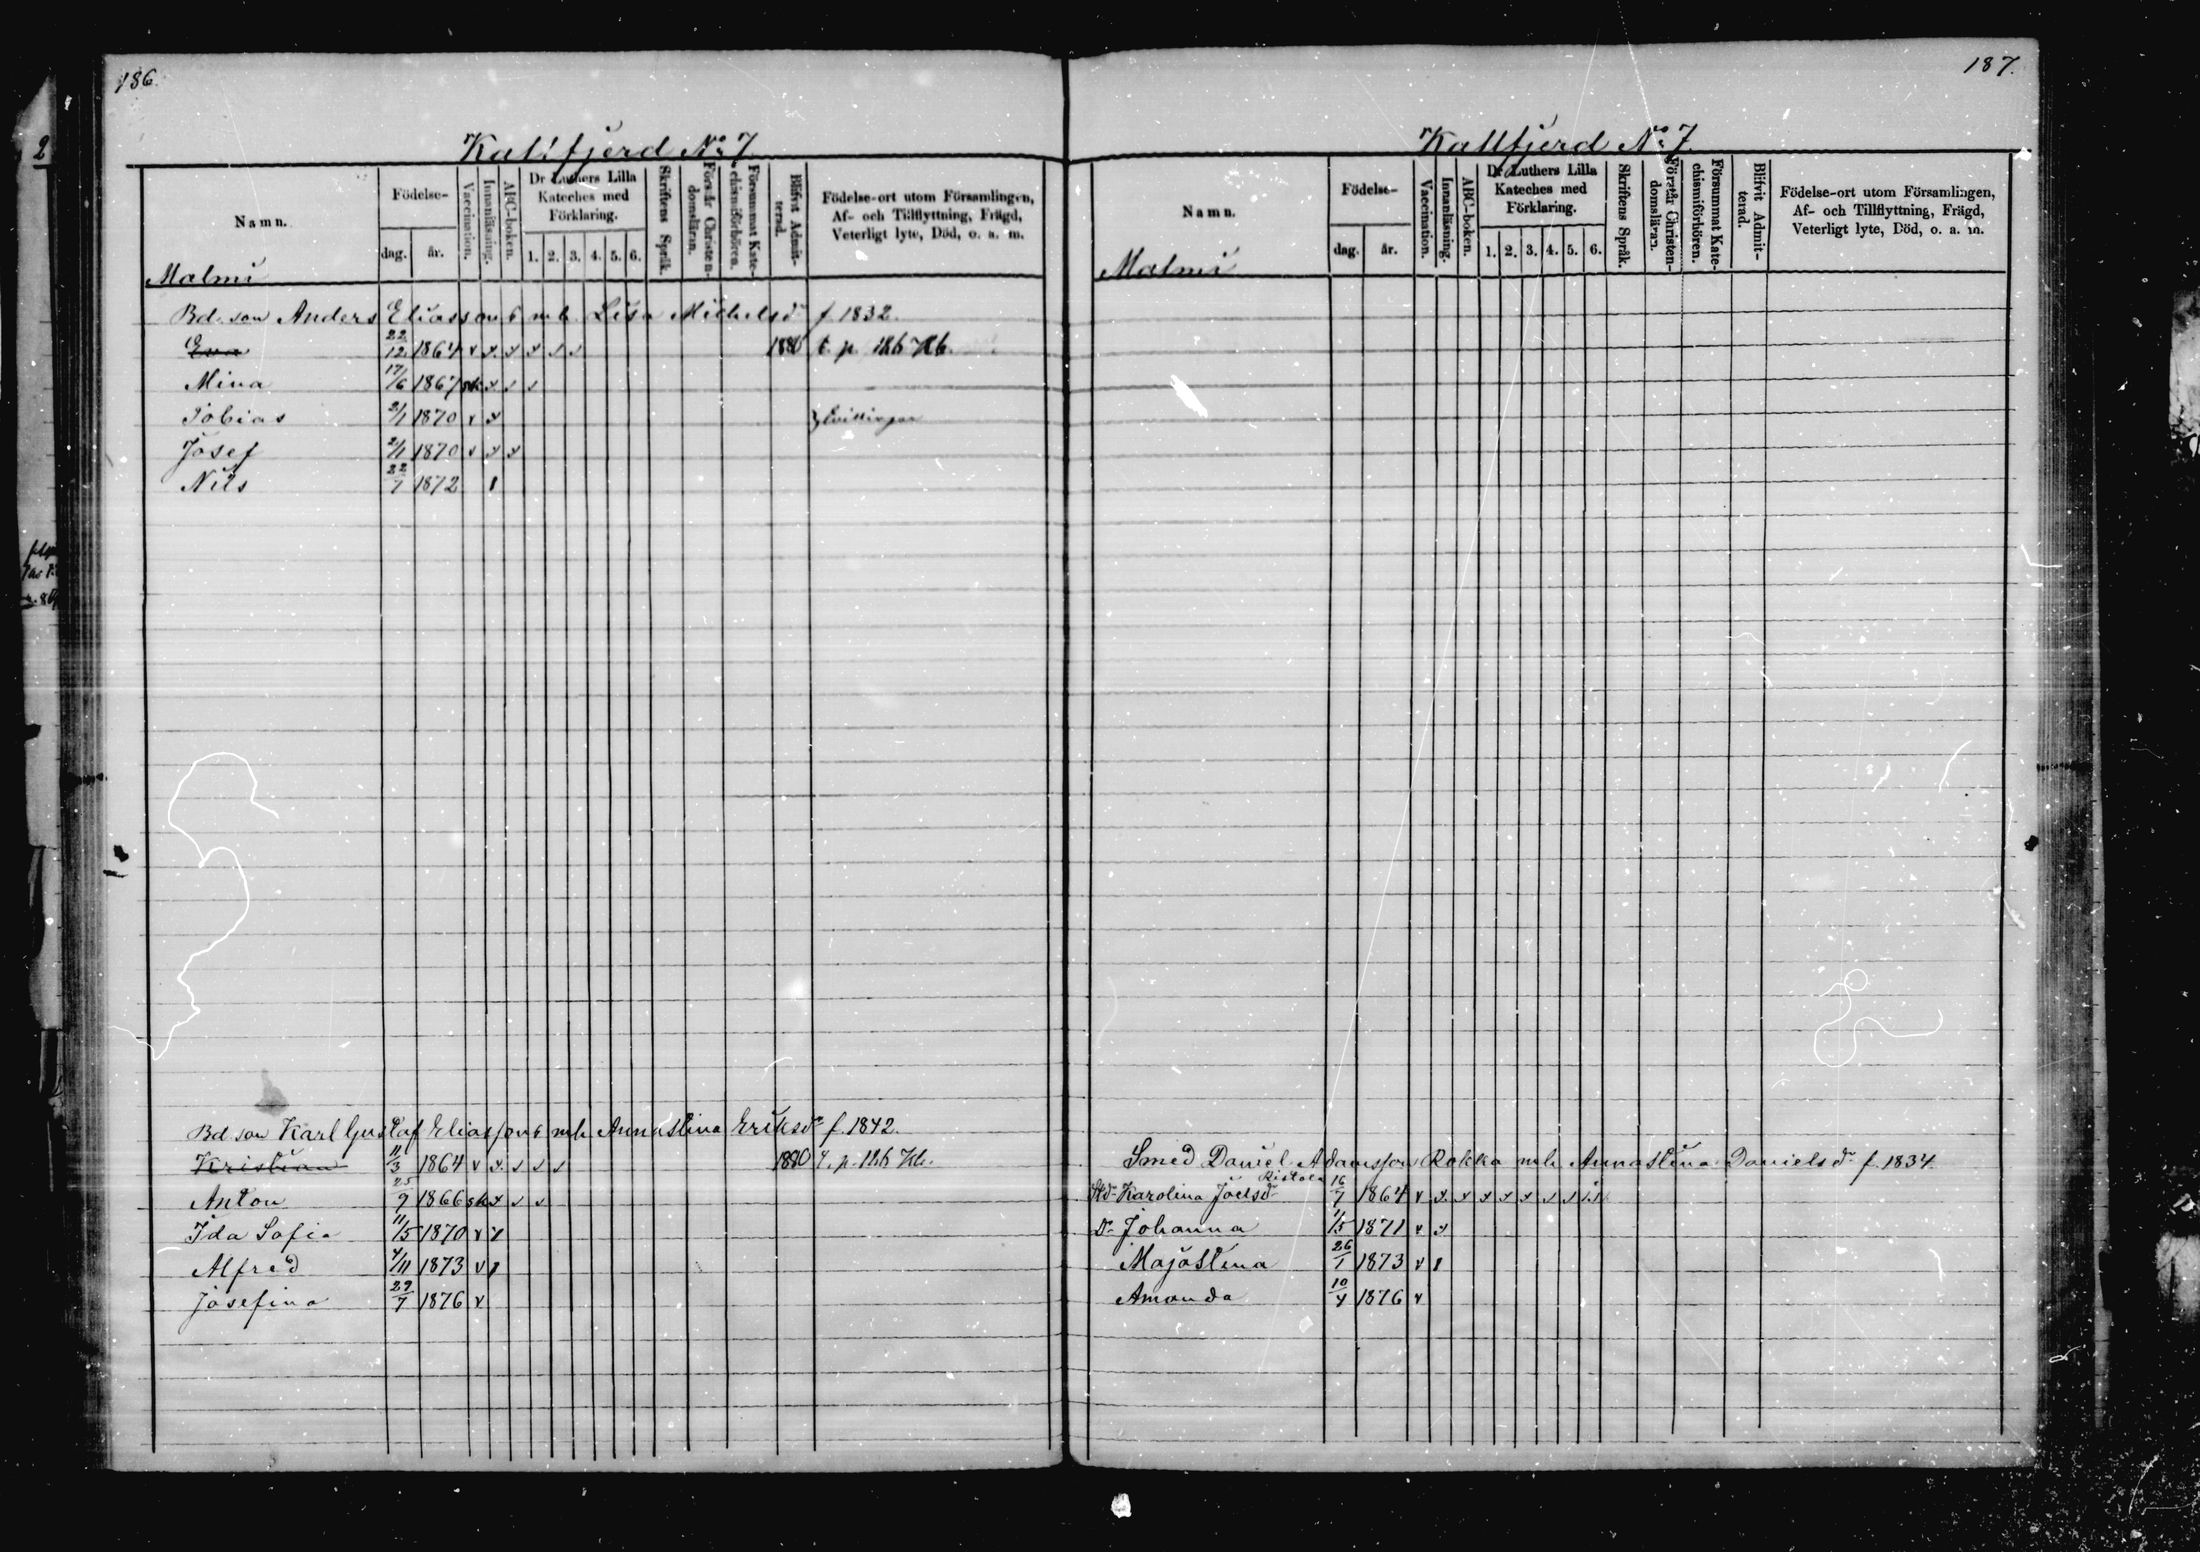 186.
Kattfjerd No 7
Namn.
Födelse-
dag.
år.
Vaccination.
Innanläsning.
ABC-boken.
Dr Luthers Lilla Kateches med Förklaring.
1. 2. 3. 4. 5. 6.
Skriftens Språk.
Förstår Christendomsläran.
Försummat Katechismiförhören.
Blifvit Admitterad.
Födelse-ort utom Församlingen,
Af- och Tillflyttning, Frägd,
Veterligt lyte, Död, o. a. m.
Malmi
Bd. son Anders Eliassons mh. Lisa Michelsdr f. 1832.
Eva 22/12 1864 v x s s s s 1880 t. p.
Mina 17/6 1867 sk x s s
Tobias 2/1 1870 v x } tvillingar
Josef 2/1 1870 v x x
Nils 22/7 1872 1
Bd. son Karl Gustaf Eliassons mh. Annastina Eriksdr f. 1842.
Kristian 11/3 1864 v x s s s 1880 t. p.
Anton 25/9 1866 sk x s s
Ida Sofia 11/5 1870 v x
Alfred 4/11 1873 v 1
Josefina 29/7 1876 v
187.
Kattfjerd No 7
Namn.
Födelse-
dag.
år.
Vaccination.
Innanläsning.
ABC-boken.
Dr Luthers Lilla Kateches med Förklaring.
1. 2. 3. 4. 5. 6.
Skriftens Språk.
Förstår Christendomsläran.
Försummat Katechismiförhören.
Blifvit Admitterad.
Födelse-ort utom Församlingen,
Af- och Tillflyttning, Frägd,
Veterligt lyte, Död, o. a. m.
Malmi
Smed Daniel Adamsson Rokka mh. Annastina Danielsdr f. 1834.
Ristola
Karolina Joelsdr 16/7 1864 v x x x x x s s s
Dr Johanna 11/5 1871 v x
Majastina 26/1 1873 v 1
Amanda 10/4 1876 v